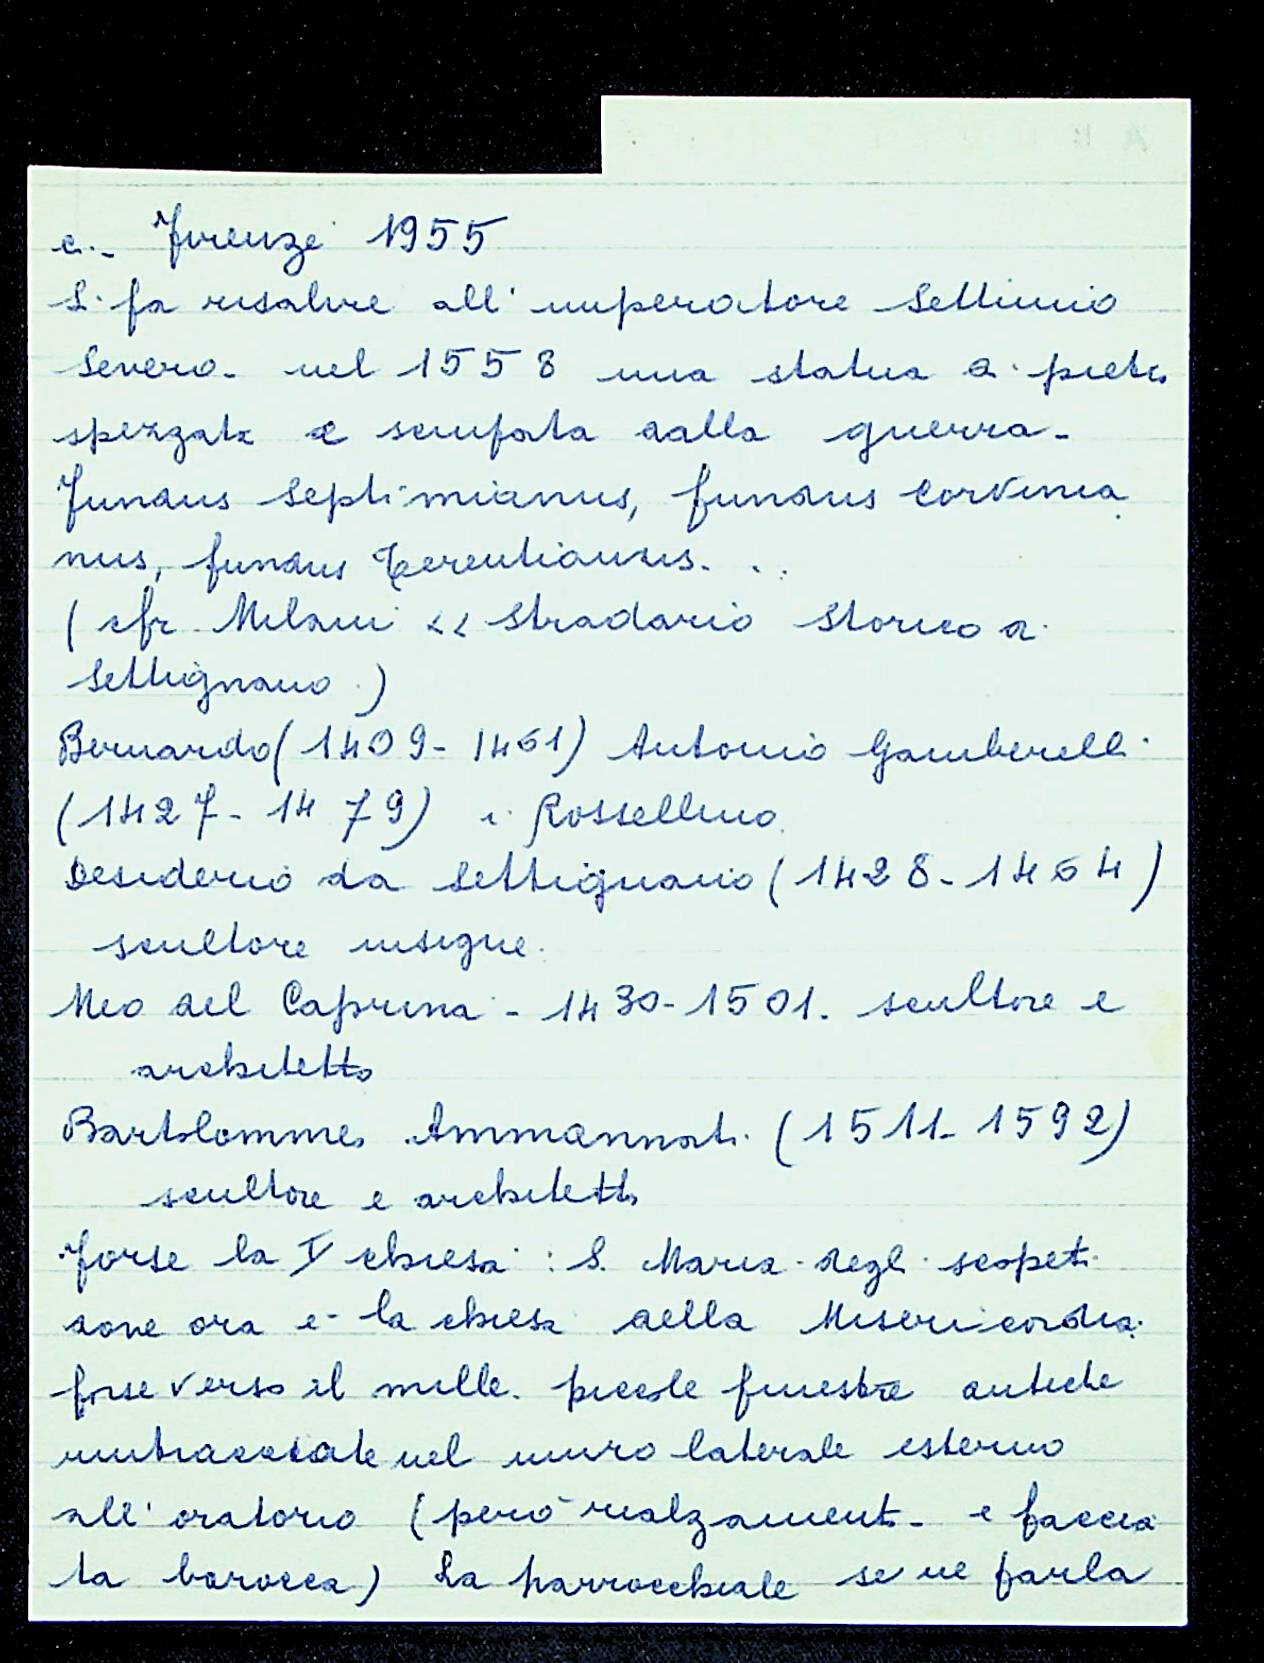 c.- Firenze 1955
Si fa risalire all'imperatore Settimio
Severo- nel 1558 una statua di pietra
spezzata e scomparsa dalla guerra-
Fundus Septimianus, fundus Corvinia
nus, fundus Terentianus. ..
(cfr. Milani << Stradario Storico di
Settignano.)
Bernardo (1409-1461) Antonio Gamberelli
(1427-1479) i Rossellino.
Desiderio da Settignano (1428-1464)
scultore insigne.
Meo del Caprina - 1430-1501. scultore e
architetto
Bartolommeo Ammannati (1511-1592)
scultore e architetto
Forse la I chiesa : S. Maria degli scopeti
dove ora è la chiesa della Misericordia.
forse verso il mille. piccole finestre antiche
rintracciate nel muro laterale esterno
all'oratorio (però rialzamenti - e faccia
ta barocca) La parrocchiale se ne parla